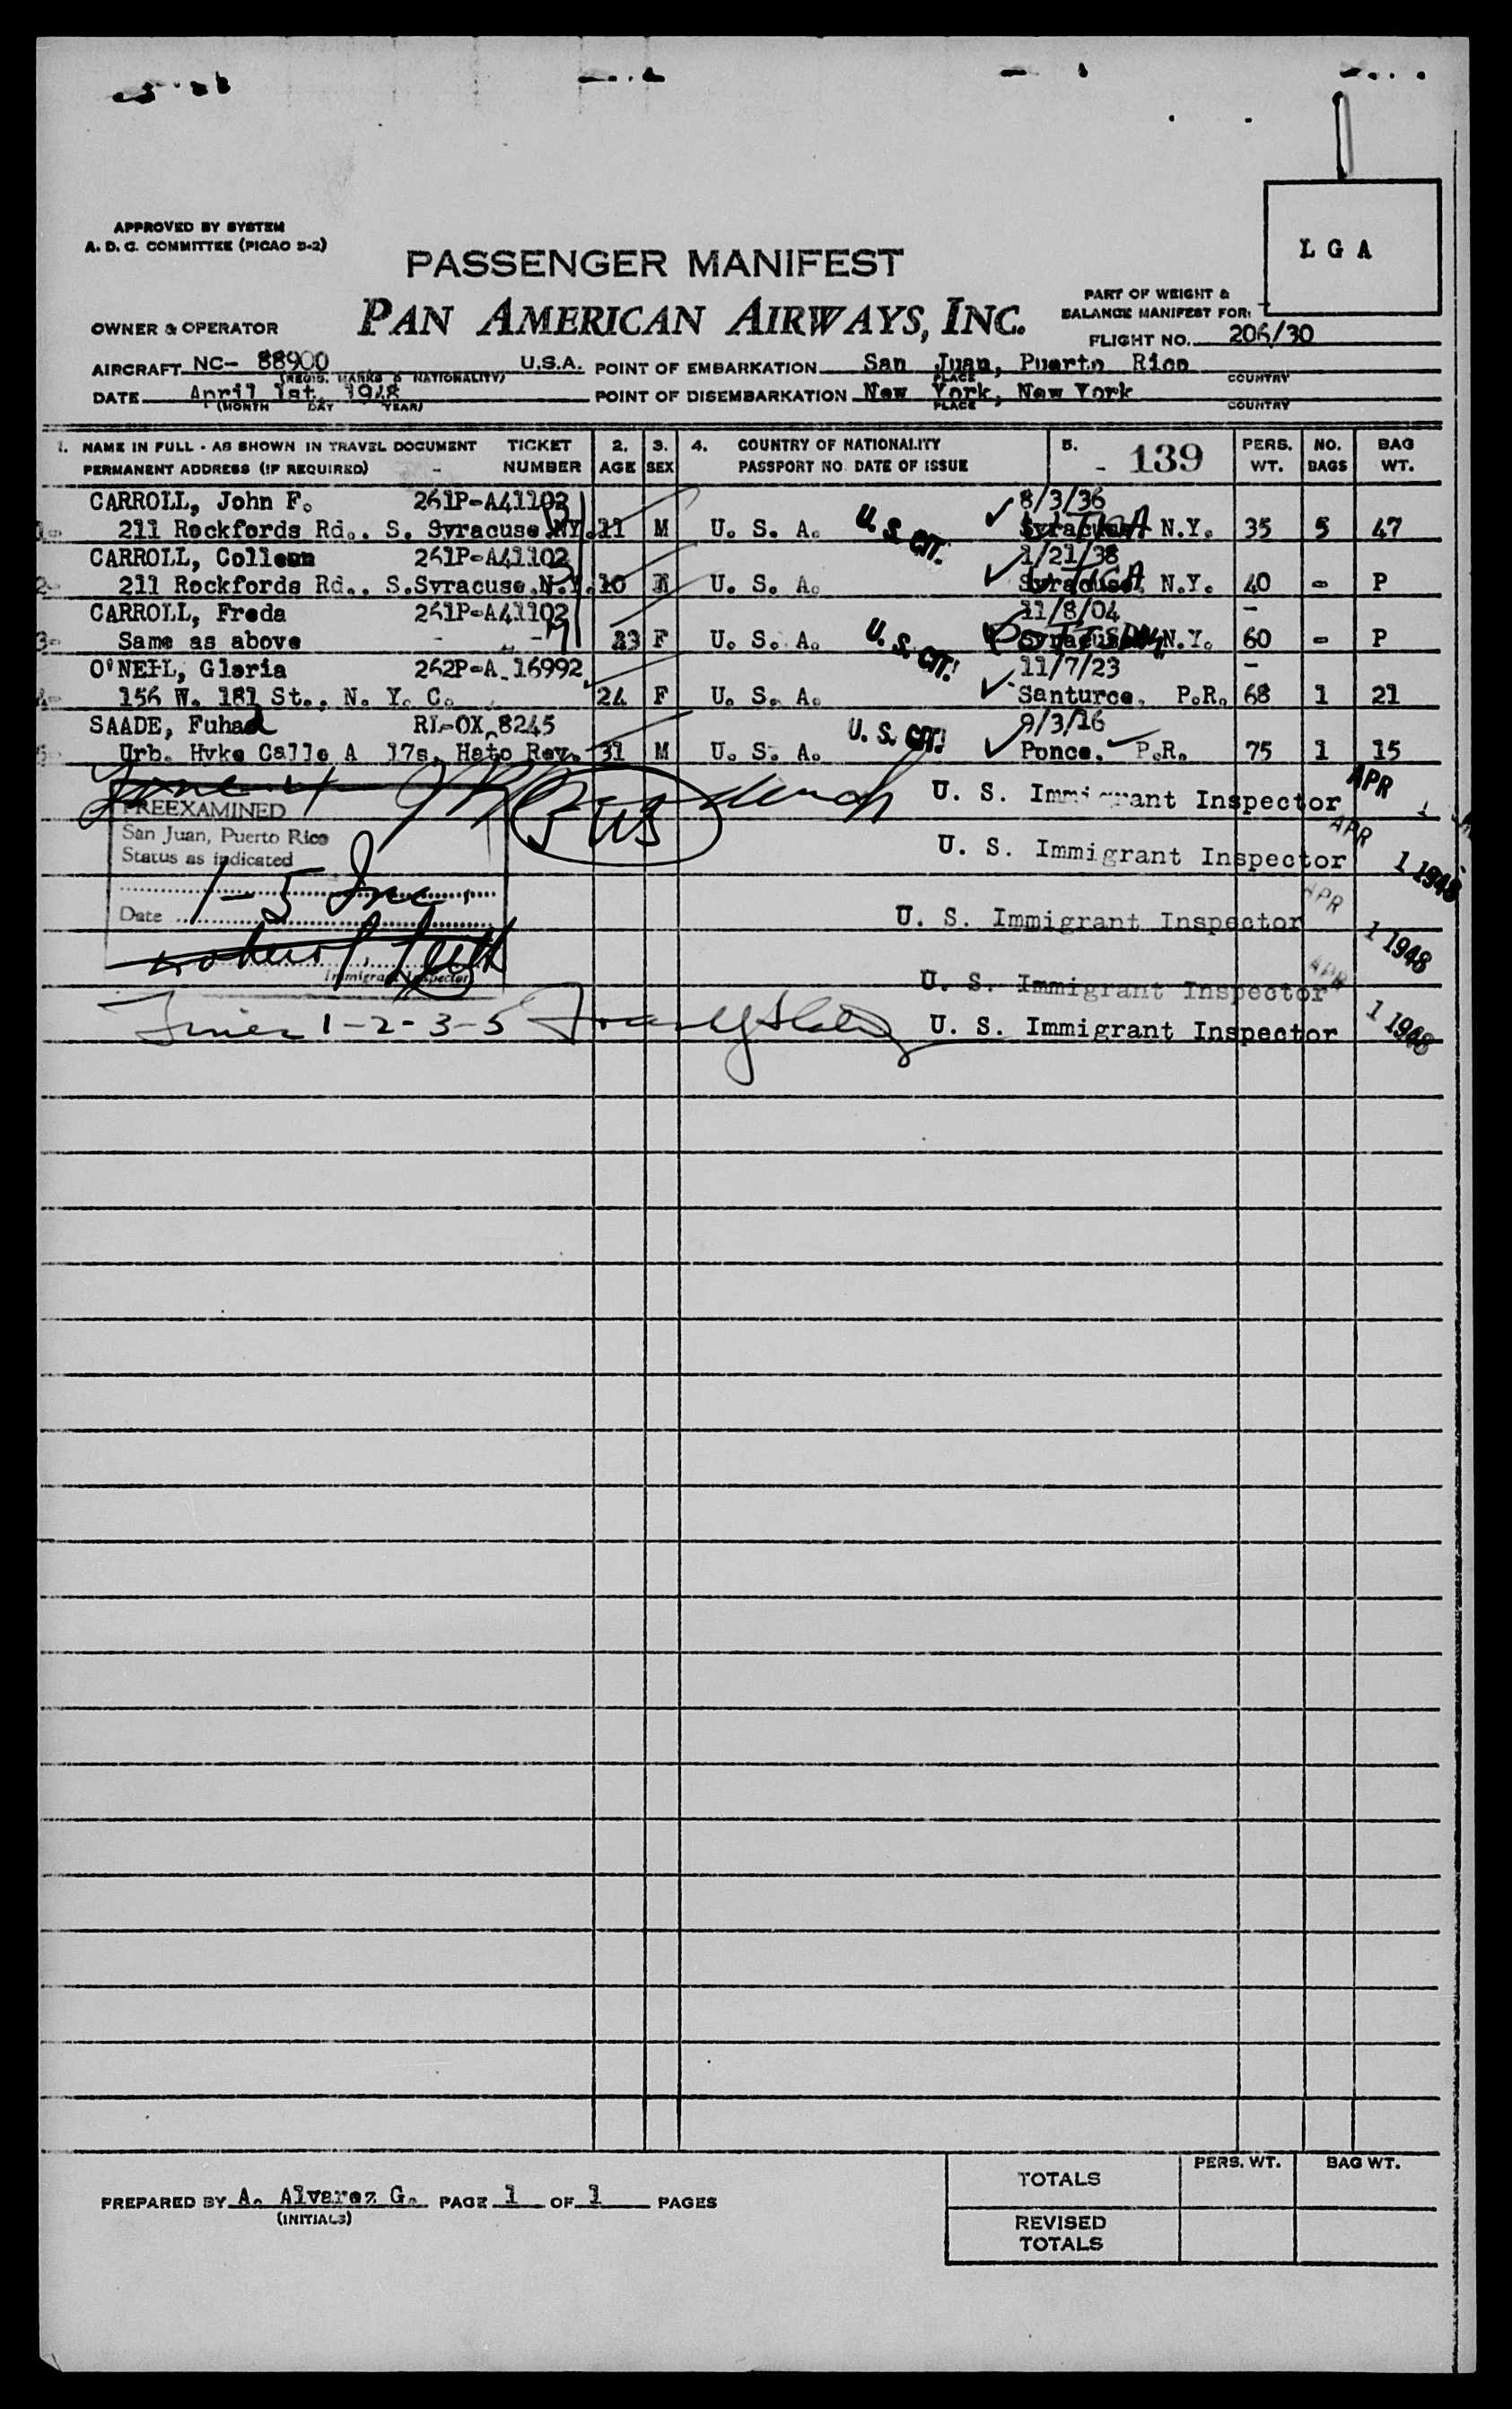 APPROVED BY SYSTEM
A. D. C. COMMITTEE (PICAO D-2)
L G A
PASSENGER MANIFEST
PAN AMERICAN AIRWAYS, INC.
PART OF WEIGHT &
BALANCE MANIFEST FOR:
OWNER & OPERATOR
FLIGHT NO. 206/30
AIRCRAFT NC- 88900 U.S.A. POINT OF EMBARKATION San Juan, Puerto Rico
(REGIS. MARKS & NATIONALITY) PLACE COUNTRY
DATE April 1st, 1948 POINT OF DISEMBARKATION New York, New York
(MONTH DAY YEAR) PLACE COUNTRY
1. NAME IN FULL - AS SHOWN IN TRAVEL DOCUMENT TICKET 2. 3. 4. COUNTRY OF NATIONALITY 5. - 139 PERS. NO. BAG
PERMANENT ADDRESS (IF REQUIRED) - NUMBER AGE SEX PASSPORT NO DATE OF ISSUE WT. BAGS WT.
CARROLL, John F. 261P-A41102 8/3/36
1- 211 Rockfords Rd., S. Syracuse NY. 11 M U. S. A. U. S. CIT. Syracuse N.Y. 35 5 47
CARROLL, Colleen 261P-A41102 1/21/38
2- 211 Rockfords Rd., S.Syracuse,N.Y. 10 U. S. A. Syracuse, N.Y. 40 - P
CARROLL, Freda 261P-A41102 11/8/04 -
3- Same as above - - 23 F U. S. A. U. S. CIT! Syracuse, N.Y. 60 - P
O'NEIL, Gloria 262P-A 16992 11/7/23 -
4- 156 W. 181 St., N. Y. C. 24 F U. S. A. Santurce, P.R. 68 1 21
SAADE, Fuhad RI-OX 8245 9/3/16
5- Urb. Hyke Calle A 17s, Hato Rey. 31 M U. S. A. U. S. CIT! Ponce, P.R. 75 1 15
U. S. Immigrant Inspector APR 1
PREEXAMINED
San Juan, Puerto Rico
Status as indicated
U. S. Immigrant Inspector APR 1 1948
1-5 Inc.
Date
U. S. Immigrant Inspector APR 1 1948
Immigrant Inspector
U. S. Immigrant Inspector APR 1 1948
1-2-3-5 U. S. Immigrant Inspector
TOTALS PERS. WT. BAG WT.
PREPARED BY A. Alvarez G. PAGE 1 OF 1 PAGES
(INITIALS)
REVISED
TOTALS